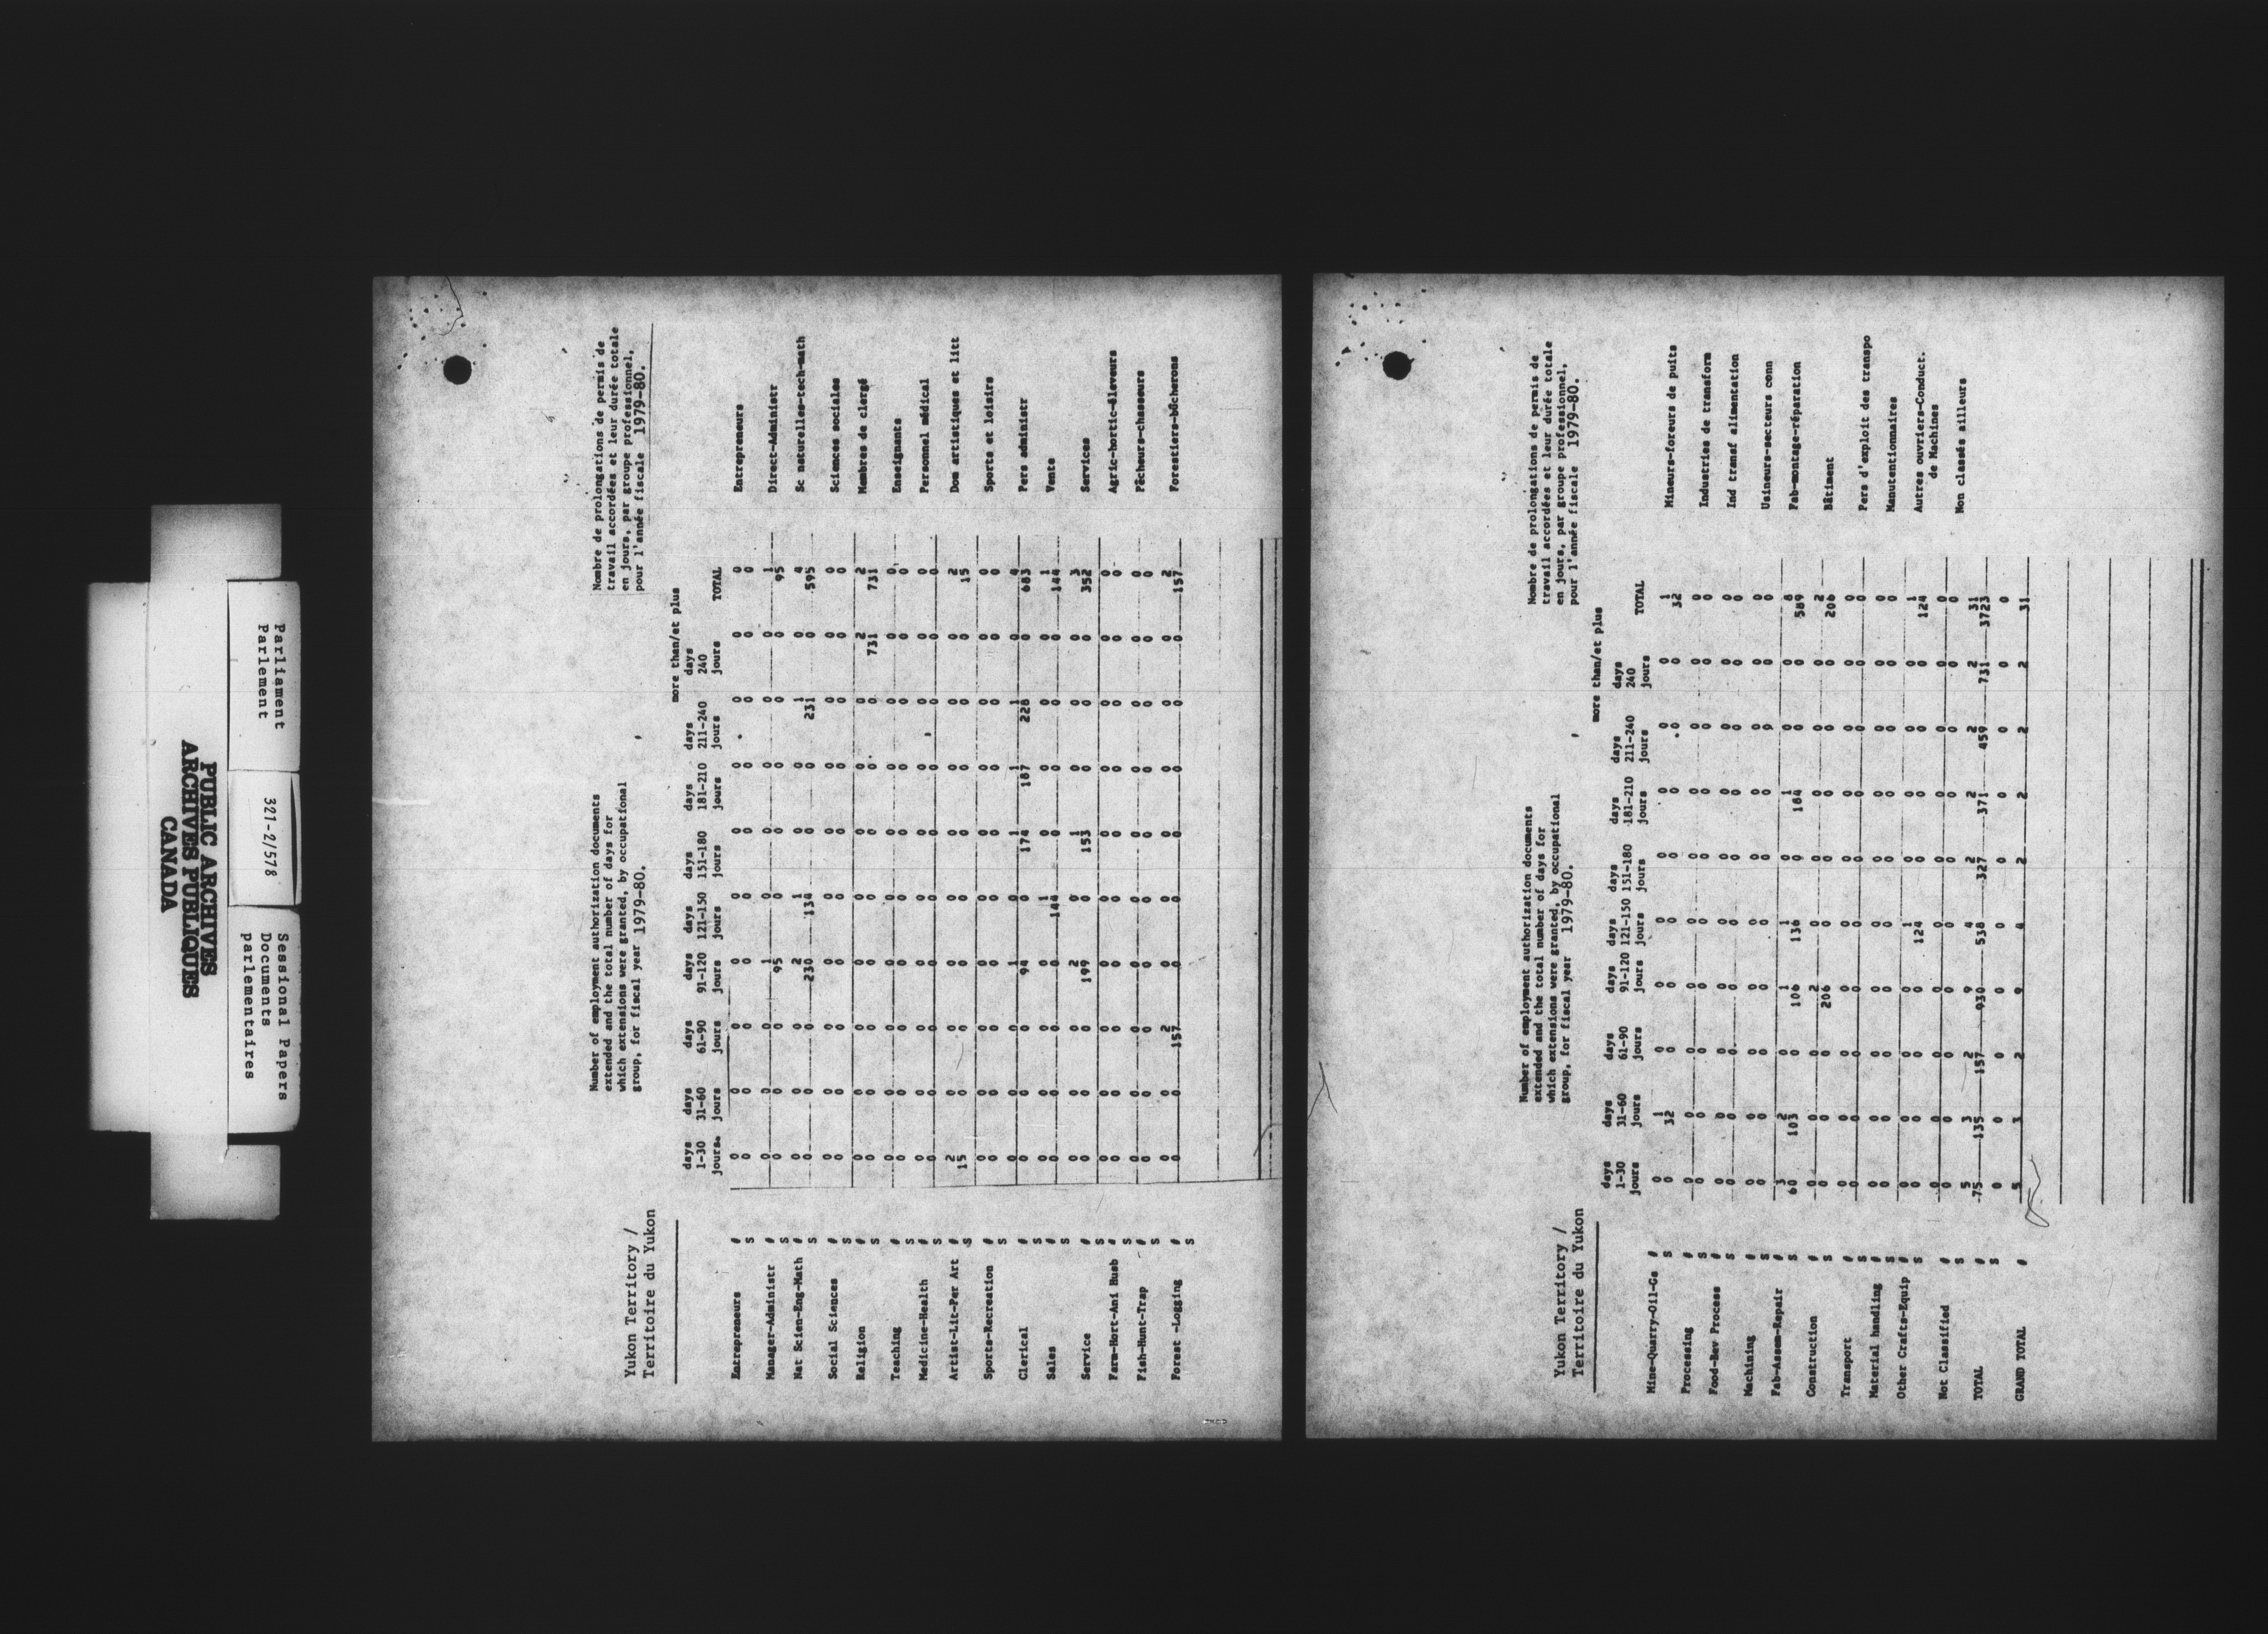 Parliament
Parlement
321-2/578
Sessional Papers
Documents
parlementaires
PUBLIC ARCHIVES
ARCHIVES PUBLIQUES
CANADA
Yukon Territory /
Territoire du Yukon
Number of employment authorization documents
extended and the total number of days for
which extensions were granted, by occupational
group, for fiscal year 1979-80.
Nombre de prolongations de permis de
travail accordées et leur durée totale
en jours, par groupe professionnel,
pour l'année fiscale 1979-80.
more than/et plus
days days days days days days days days days
1-30 31-60 61-90 91-120 121-150 151-180 181-210 211-240 240 TOTAL
jours jours jours jours jours jours jours jours jours
Entrepreneurs # 0 0 0 0 0 0 0 0 0 0 Entrepreneurs
S 0 0 0 0 0 0 0 0 0 0
Manager-Administr # 0 0 0 1 0 0 0 0 0 1 Direct-Administr
S 0 0 0 95 0 0 0 0 0 95
Nat Scien-Eng-Math # 0 0 0 2 1 0 0 1 0 4 Sc naturelles-tech-math
S 0 0 0 230 134 0 0 231 0 595
Social Sciences # 0 0 0 0 0 0 0 0 0 0 Sciences sociales
S 0 0 0 0 0 0 0 0 0 0
Religion # 0 0 0 0 0 0 0 0 2 2 Membres de clergé
S 0 0 0 0 0 0 0 0 731 731
Teaching # 0 0 0 0 0 0 0 0 0 0 Enseignants
S 0 0 0 0 0 0 0 0 0 0
Medicine-Health # 0 0 0 0 0 0 0 0 0 0 Personnel médical
S 0 0 0 0 0 0 0 0 0 0
Artist-Lit-Per Art # 2 0 0 0 0 0 0 0 0 2 Dom artistiques et litt
S 15 0 0 0 0 0 0 0 0 15
Sports-Recreation # 0 0 0 0 0 0 0 0 0 0 Sports et loisirs
S 0 0 0 0 0 0 0 0 0 0
Clerical # 0 0 0 1 0 1 1 1 0 4 Pers administr
S 0 0 0 94 0 174 187 228 0 683
Sales # 0 0 0 0 1 0 0 0 0 1 Vente
S 0 0 0 0 144 0 0 0 0 144
Service # 0 0 0 2 0 1 0 0 0 3 Services
S 0 0 0 199 0 153 0 0 0 352
Farm-Hort-Ani Husb # 0 0 0 0 0 0 0 0 0 0 Agric-hortic-éleveurs
S 0 0 0 0 0 0 0 0 0 0
Fish-Hunt-Trap # 0 0 0 0 0 0 0 0 0 0 Pêcheurs-chasseurs
S 0 0 0 0 0 0 0 0 0 0
Forest -Logging # 0 0 2 0 0 0 0 0 0 2 Forestiers-bûcherons
S 0 0 157 0 0 0 0 0 0 157
Yukon Territory /
Territoire du Yukon
Number of employment authorization documents
extended and the total number of days for
which extensions were granted, by occupational
group, for fiscal year 1979-80.
Nombre de prolongations de permis de
travail accordées et leur durée totale
en jours, par groupe professionnel,
pour l'année fiscale 1979-80.
more than/et plus
days days days days days days days days days
1-30 31-60 61-90 91-120 121-150 151-180 181-210 211-240 240 TOTAL
jours jours jours jours jours jours jours jours jours
Mine-Quarry-Oil-Gs # 0 1 0 0 0 0 0 0 0 1 Mineurs-foreurs de puits
S 0 32 0 0 0 0 0 0 0 32
Processing # 0 0 0 0 0 0 0 0 0 0 Industries de transform
S 0 0 0 0 0 0 0 0 0 0
Food-Bev Process # 0 0 0 0 0 0 0 0 0 0 Ind transf alimentation
S 0 0 0 0 0 0 0 0 0 0
Machining # 0 0 0 0 0 0 0 0 0 0 Usineurs-secteurs conn
S 0 0 0 0 0 0 0 0 0 0
Fab-Assem-Repair # 3 2 0 1 1 0 1 0 0 8 Fab-montage-réparation
S 60 103 0 106 136 0 184 0 0 589
Construction # 0 0 0 2 0 0 0 0 0 2 Bâtiment
S 0 0 0 206 0 0 0 0 0 206
Transport # 0 0 0 0 0 0 0 0 0 0 Pers d'exploit des transpo
S 0 0 0 0 0 0 0 0 0 0
Material handling # 0 0 0 0 0 0 0 0 0 0 Manutentionnaires
S 0 0 0 0 0 0 0 0 0 0
Other Crafts-Equip # 0 0 0 0 1 0 0 0 0 1 Autres ouvriers-Conduct.
S 0 0 0 0 124 0 0 0 0 124 de Machines
Not Classified # 0 0 0 0 0 0 0 0 0 0 Non classés ailleurs
S 0 0 0 0 0 0 0 0 0 0
TOTAL # 5 3 2 9 4 2 2 2 2 31
S 75 135 157 930 538 327 371 459 731 3723
0 0 0 0 0 0 0 0 0 0
GRAND TOTAL # 5 3 2 9 4 2 2 2 2 31